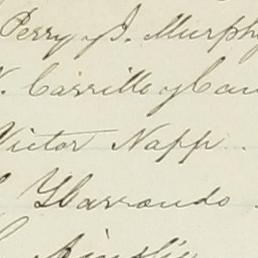 Perry y J. Murphy
Carrillo y Cau
Victor Napp.
Ybarrondo.
Ainslie